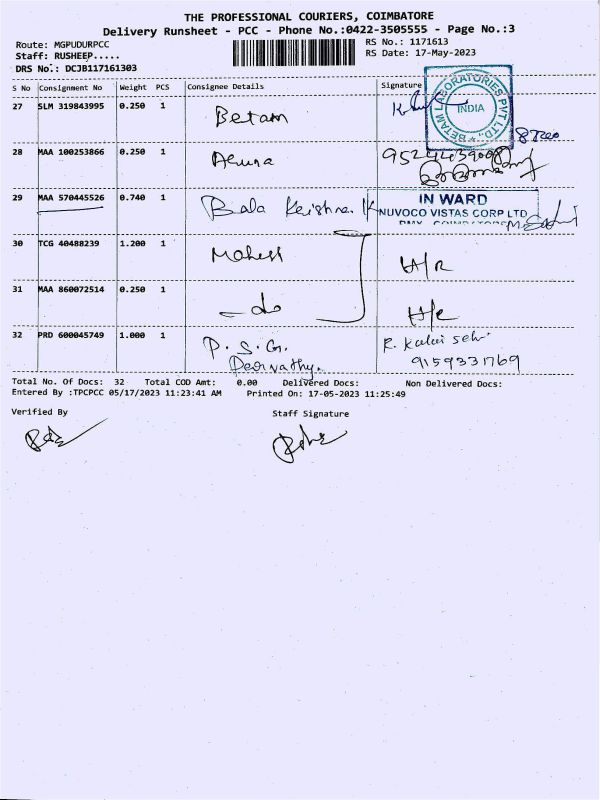 THE PROFESSIONAL COURIERS, COIMBATORE
Delivery Runsheet - PCC - Phone No.:0422-3505555 - Page No.:3
Route: MGPUDURPCC
RS No.: 1171613
Staff: RUSHEEP.....
RS Date: 17-May-2023
DRS No.: DCJB117161303
S No Consignment No Weight PCS Consignee Details Signature
27 SLM 319843995 0.250 1 Betam
BETAM LABORATORIES PVT LTD.,
INDIA
28 MAA 100253866 0.250 1 Aruna
29 MAA 570445526 0.740 1 Bala Krishna K
IN WARD
NUVOCO VISTAS CORP LTD
30 TCG 40488239 1.200 1 Mahesh H/R
31 MAA 860072514 0.250 1 - do
32 PRD 600045749 1.000 1 P. S. G. R. Kalai selvi
9159331769
Total No. Of Docs: 32 Total COD Amt: 0.00 Delivered Docs: Non Delivered Docs:
Entered By :TPCPCC 05/17/2023 11:23:41 AM Printed On: 17-05-2023 11:25:49
Verified By Staff Signature